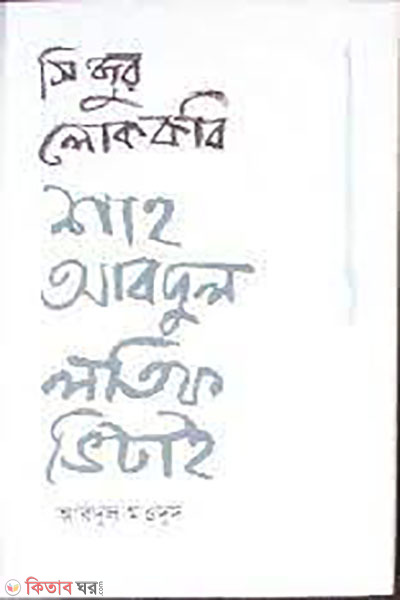 সিন্ধুর
লোককবি
শাহ
আবদুল
লতিফ
ভিটাই
আবদুল মওদুদ
কিতাব ঘর.com